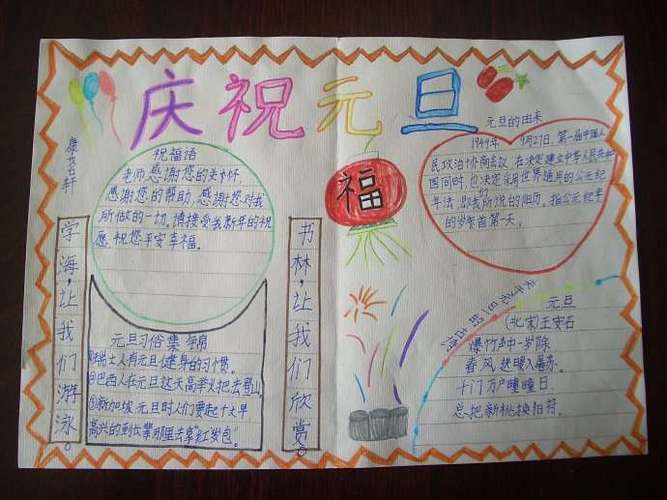 庆祝元旦
祝福语
老师感谢您的关怀
感谢您的帮助,感谢您对我
所做的一切。请接受我新年的祝
愿,祝您平安幸福。
学海,让我们游泳。
元旦习俗集锦
①瑞士人有元旦健身的习惯。
②巴西人在元旦这天高举火把去登山
③新加坡元旦时人们要起个大早
高兴的到长辈那里去拿"红岁包"。
书林,让我们欣赏。
福
元旦的由来
1949年 9月27日,第一届中国人
民政治协商会议,在决定建立中华人民共和
国同时,也决定采用世界通用的公元纪
年法,即我所说的阳历。指公元纪年
的岁首第一天。
元旦
(北宋)王安石
爆竹声中一岁除
春风送暖入屠苏.
千门万户曈曈日.
总把新桃换旧符.